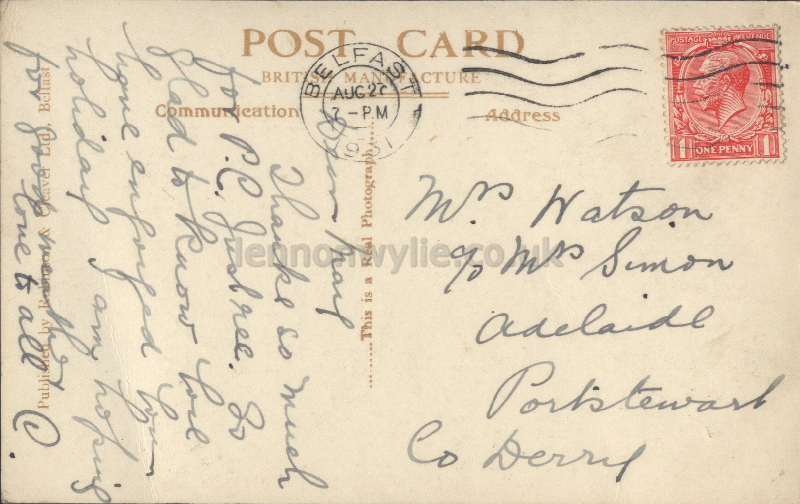 POST CARD
BRITISH MANUFACTURE
Communication
Address
BELFAST
AUG 2
7 - PM
1931
POSTAGE REVENUE
1 ONE PENNY 1
Dear Mary
Thanks so much
for P.C. Just rec. So
glad to know you
have enjoyed your
holiday I am hoping
for good
love to all C.
Mrs Watson
c/o Mrs Simon
Adelaide
Portstewart
Co Derry
This is a Real Photograph
Published by Robinson & Cleaver Ltd., Belfast
lennonwylie.co.uk